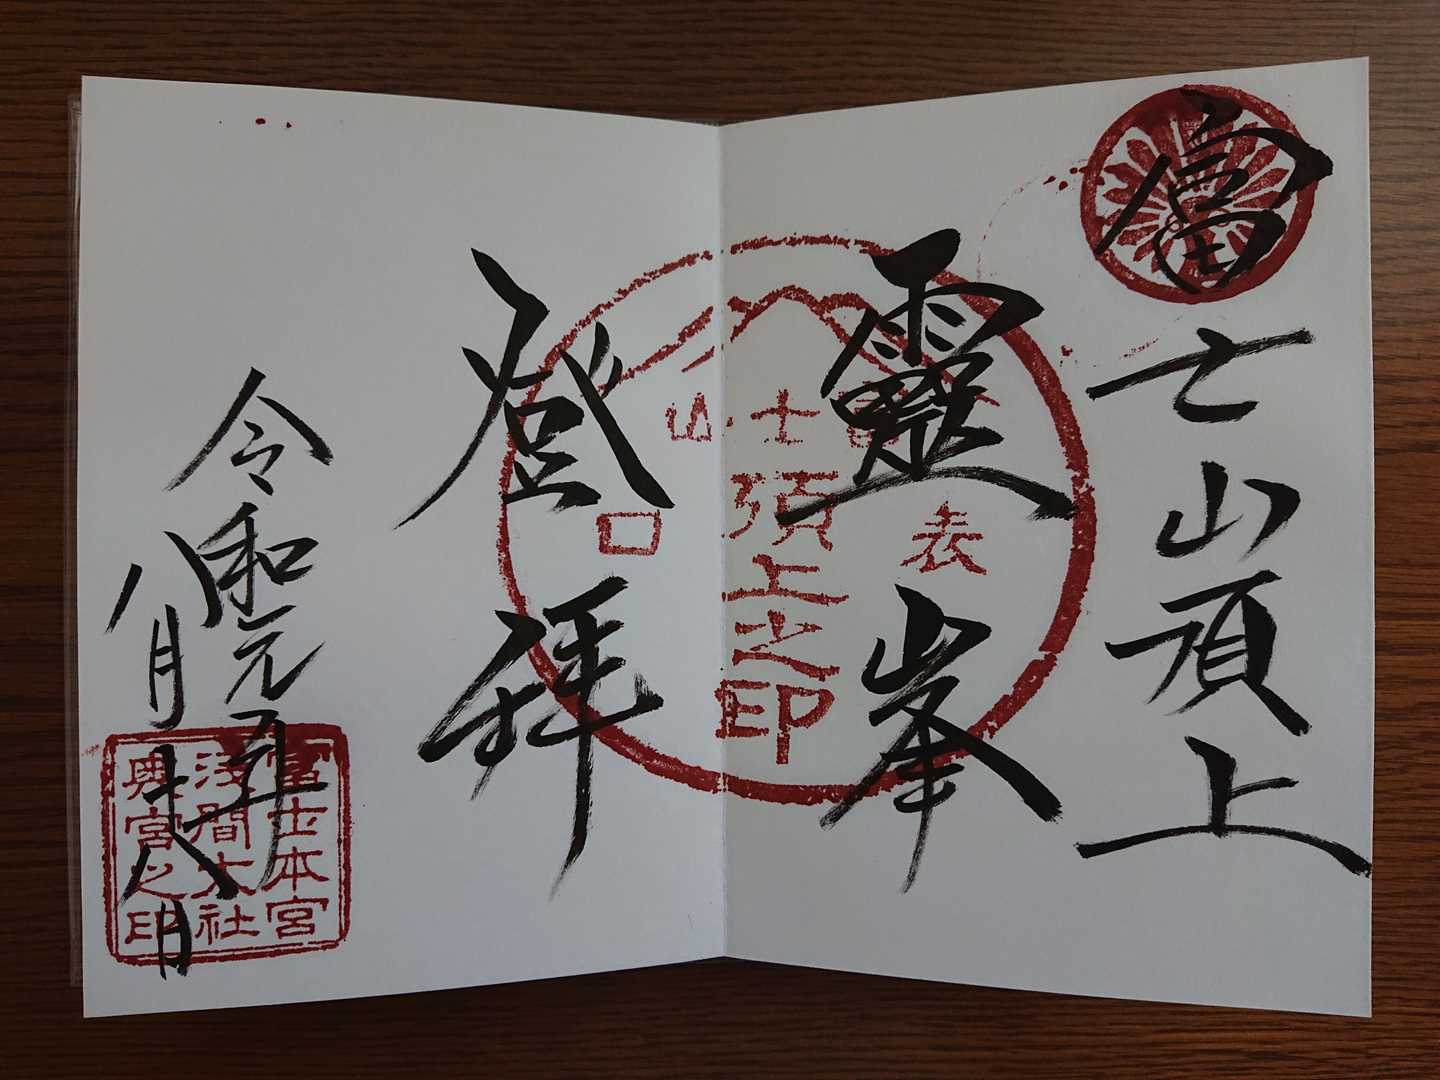 富士山頂上
靈峯
登拝
令和元年
八月十八日
富士山
表口
頂上之印
富士本宮
浅間大社
奥宮之印